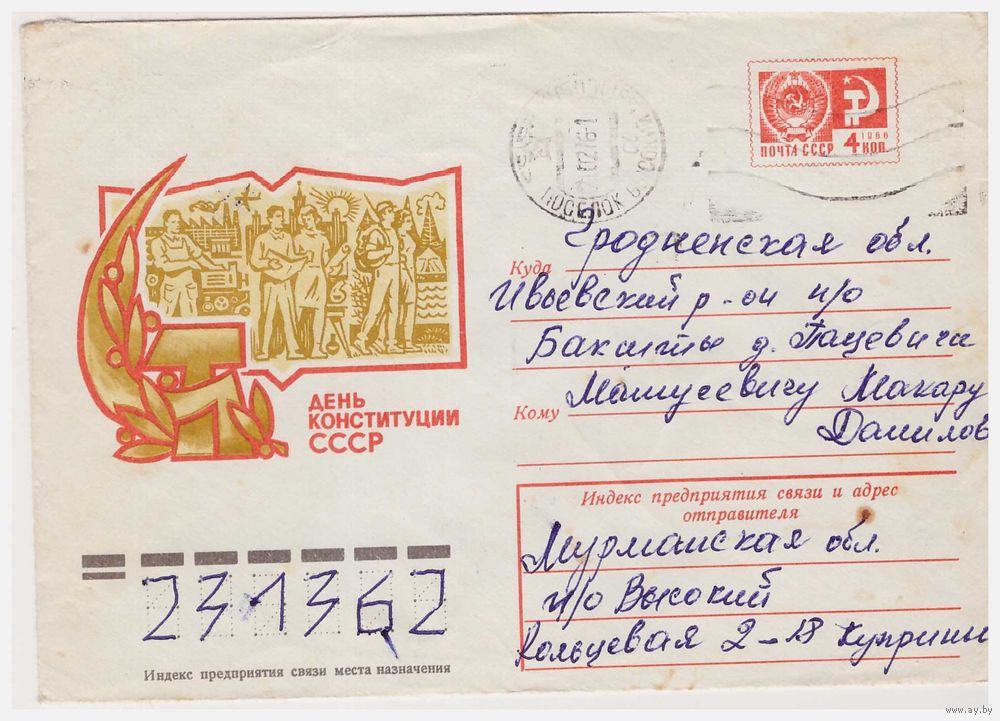 ПОЧТА СССР
1966
4 КОП.
ПОСЕЛОК
Куда Гродненская обл.
Ивьевский р-он п/о
Бакшты д. Пацевичи
Кому Матусевичу Макару
Данилов
ДЕНЬ
КОНСТИТУЦИИ
СССР
Индекс предприятия связи и адрес
отправителя
Мурманская обл.
п/о Высокий
Кольцевая 2-18 Куприны
231362
Индекс предприятия связи места назначения
www.ay.by